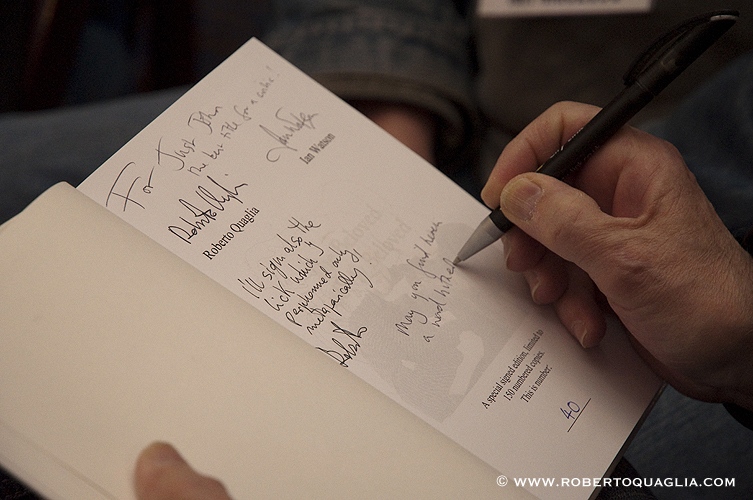 For Just John
the best title for a
Roberto Quaglia
Ian Watson
I'll sign also the
lick which y
performed only
metaphorically!
Roberto
may you find
a
A special signed edition, limited to
150 numbered copies.
This is number:
40
© WWW.ROBERTOQUAGLIA.COM